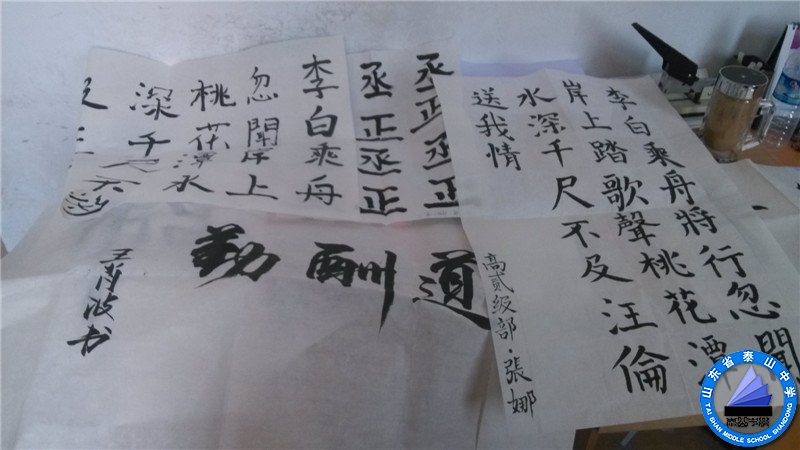 李白乘舟將行忽聞
岸上踏歌聲桃花潭
水深千尺不及汪倫
送我情
高貳級部·張娜
丞正丞正
丞正丞正
李白乘舟
忽聞岸上
桃花潭水
深千尺
道酬勤
王青波书
山东省泰山中学
TAI SHAN MIDDLE SCHOOL SHANDONG